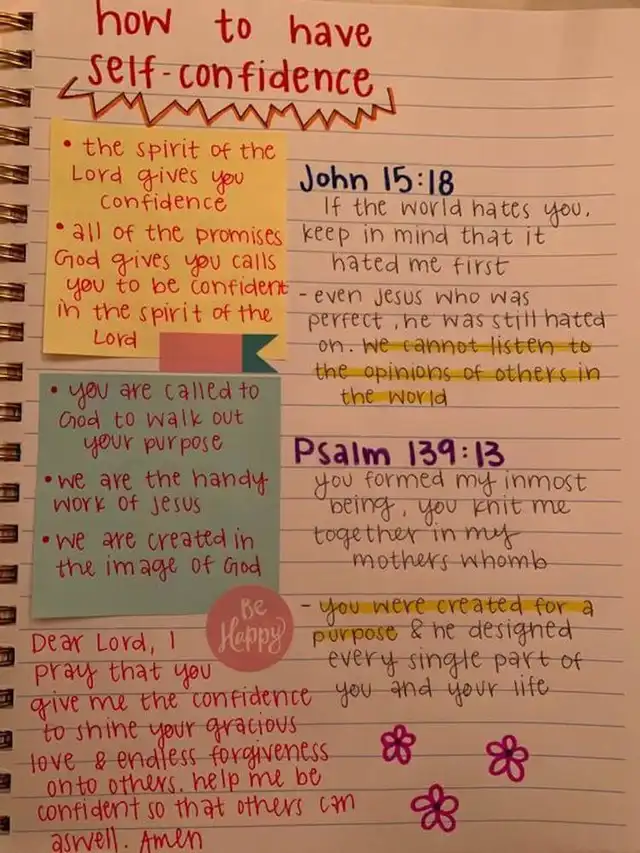 how to have
self-confidence
• the spirit of the
Lord gives you
confidence
• all of the promises
God gives you calls
you to be confident
in the spirit of the
Lord
• you are called to
God to walk out
your purpose
• we are the handy
work of Jesus
• we are created in
the image of God
Be
Happy
Dear Lord, I
pray that you
give me the confidence
to shine your gracious
love & endless forgiveness
onto others. help me be
confident so that others can
aswell. Amen
John 15:18
If the world hates you,
keep in mind that it
hated me first
- even Jesus who was
perfect, he was still hated
on. we cannot listen to
the opinions of others in
the world
Psalm 139:13
you formed my inmost
being, you knit me
together in my
mothers whomb
- you were created for a
purpose & he designed
every single part of
you and your life